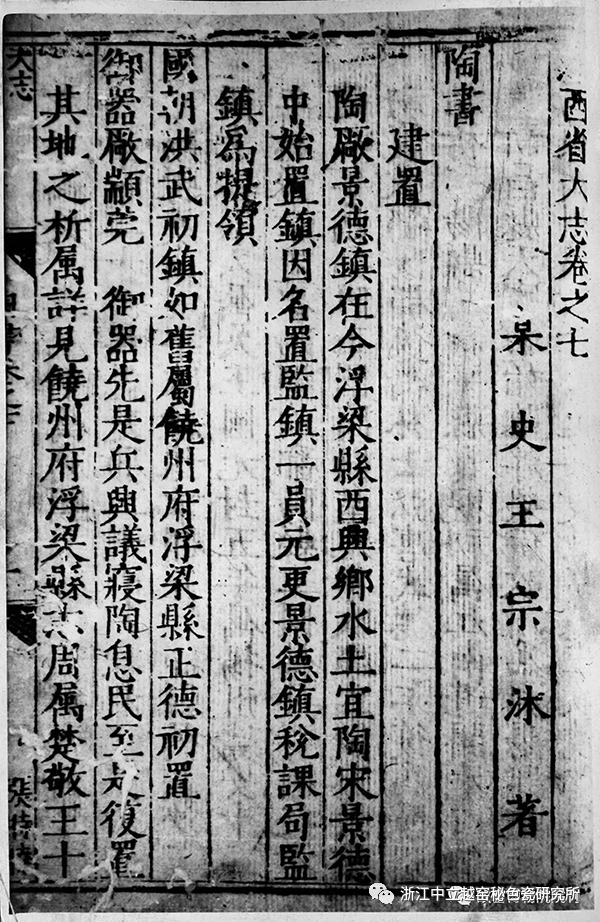 西省大志卷之七
呆史王宗沐著
陶書
建置
陶廠景德鎮在今浮梁縣西興鄉水土宜陶宋景德
中始置鎮因名置監鎮一員元更景德鎮稅課局監
鎮為提領
國朝洪武初鎮如舊屬饒州府浮梁縣正德初置
御器廠顓莞 御器先是兵興議寢陶息民至是復置
其地之析属詳見饒州府浮梁縣志周属楚敬王十
大志
浙江中立越窑秘色瓷研究所